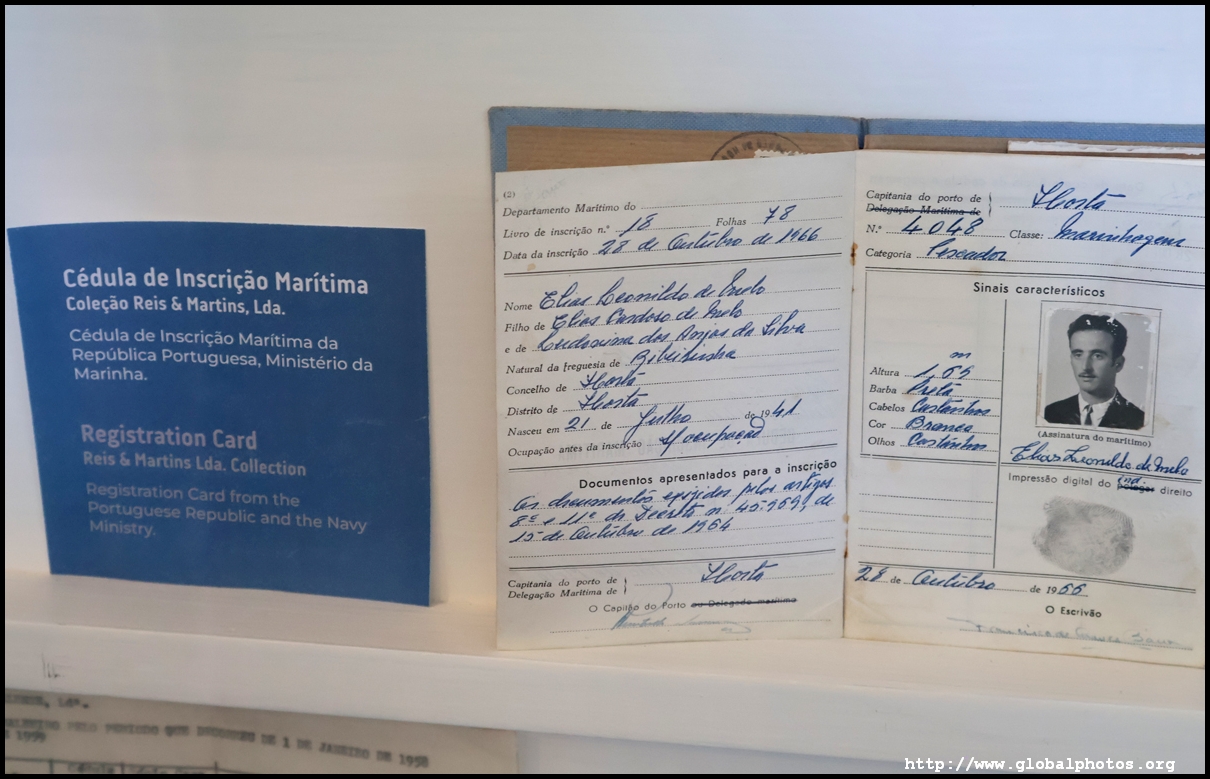 Cédula de Inscrição Marítima
Coleção Reis & Martins, Lda.
Cédula de Inscrição Marítima da
República Portuguesa, Ministério da
Marinha.
Registration Card
Reis & Martins Lda. Collection
Registration Card from the
Portuguese Republic and the Navy
Ministry.
(2)
Departamento Marítimo do
Livro de inscrição n.º 18 Folhas 78
Data da inscrição 28 de Outubro de 1966
Nome Elias Leonildo de Melo
Filho de Elias Cardoso de Melo
e de dos Anjos da Silva
Natural da freguesia de Ribeirinha
Concelho de Horta
Distrito de Horta
Nasceu em 21 de Julho de 1941
Ocupação antes da inscrição ocupação
Documentos apresentados para a inscrição
Os documentos exigidos pelos artigos
8º e 11º do Decreto n. 45.969, de
15 de Outubro de 1964
Capitania do porto de Horta
Delegação Marítima de
O Capitão do Porto ou Delegado marítimo
Capitania do porto de Horta
Delegação Marítima de
N.º 4048 Classe: Marinhagem
Categoria Pescador
Sinais característicos
Altura 1,65 m
Barba Preta
Cabelos Castanhos
Cor Branca
Olhos Castanhos
(Assinatura do marítimo)
Elias Leonildo de Melo
Impressão digital do polegar ind. direito
28 de Outubro de 1966
O Escrivão
DE 1 DE JANEIRO DE 1958
http://www.globalphotos.org